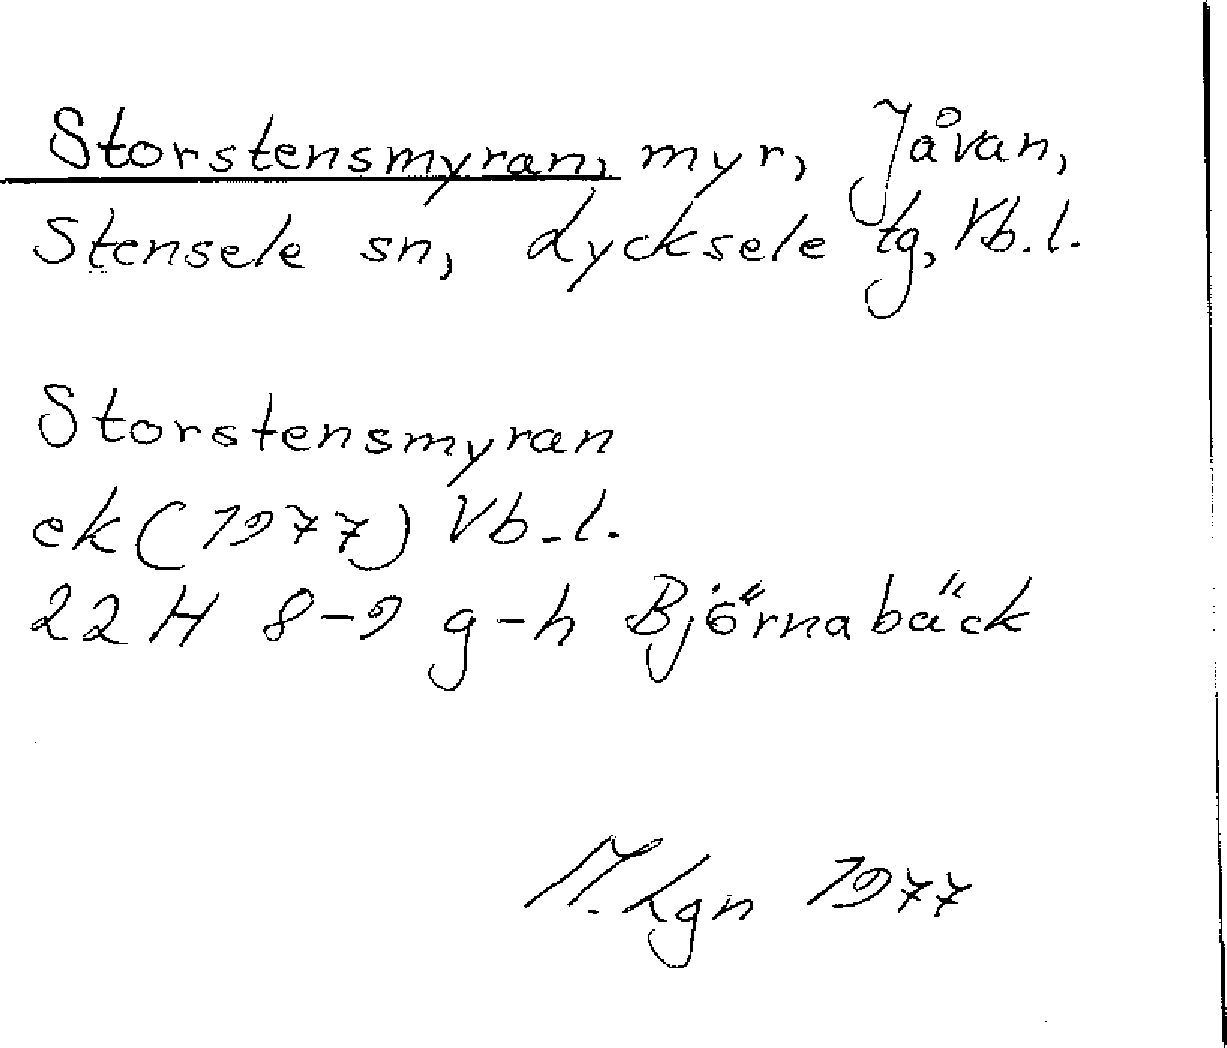 Storstensmyran, myr, Jåvan,
Stensele sn, Lycksele tg, Vb.l.
Storstensmyran
ek (1977) Vb.l.
22 H 8-9 g-h Björnabäck
M. Lgn 1977